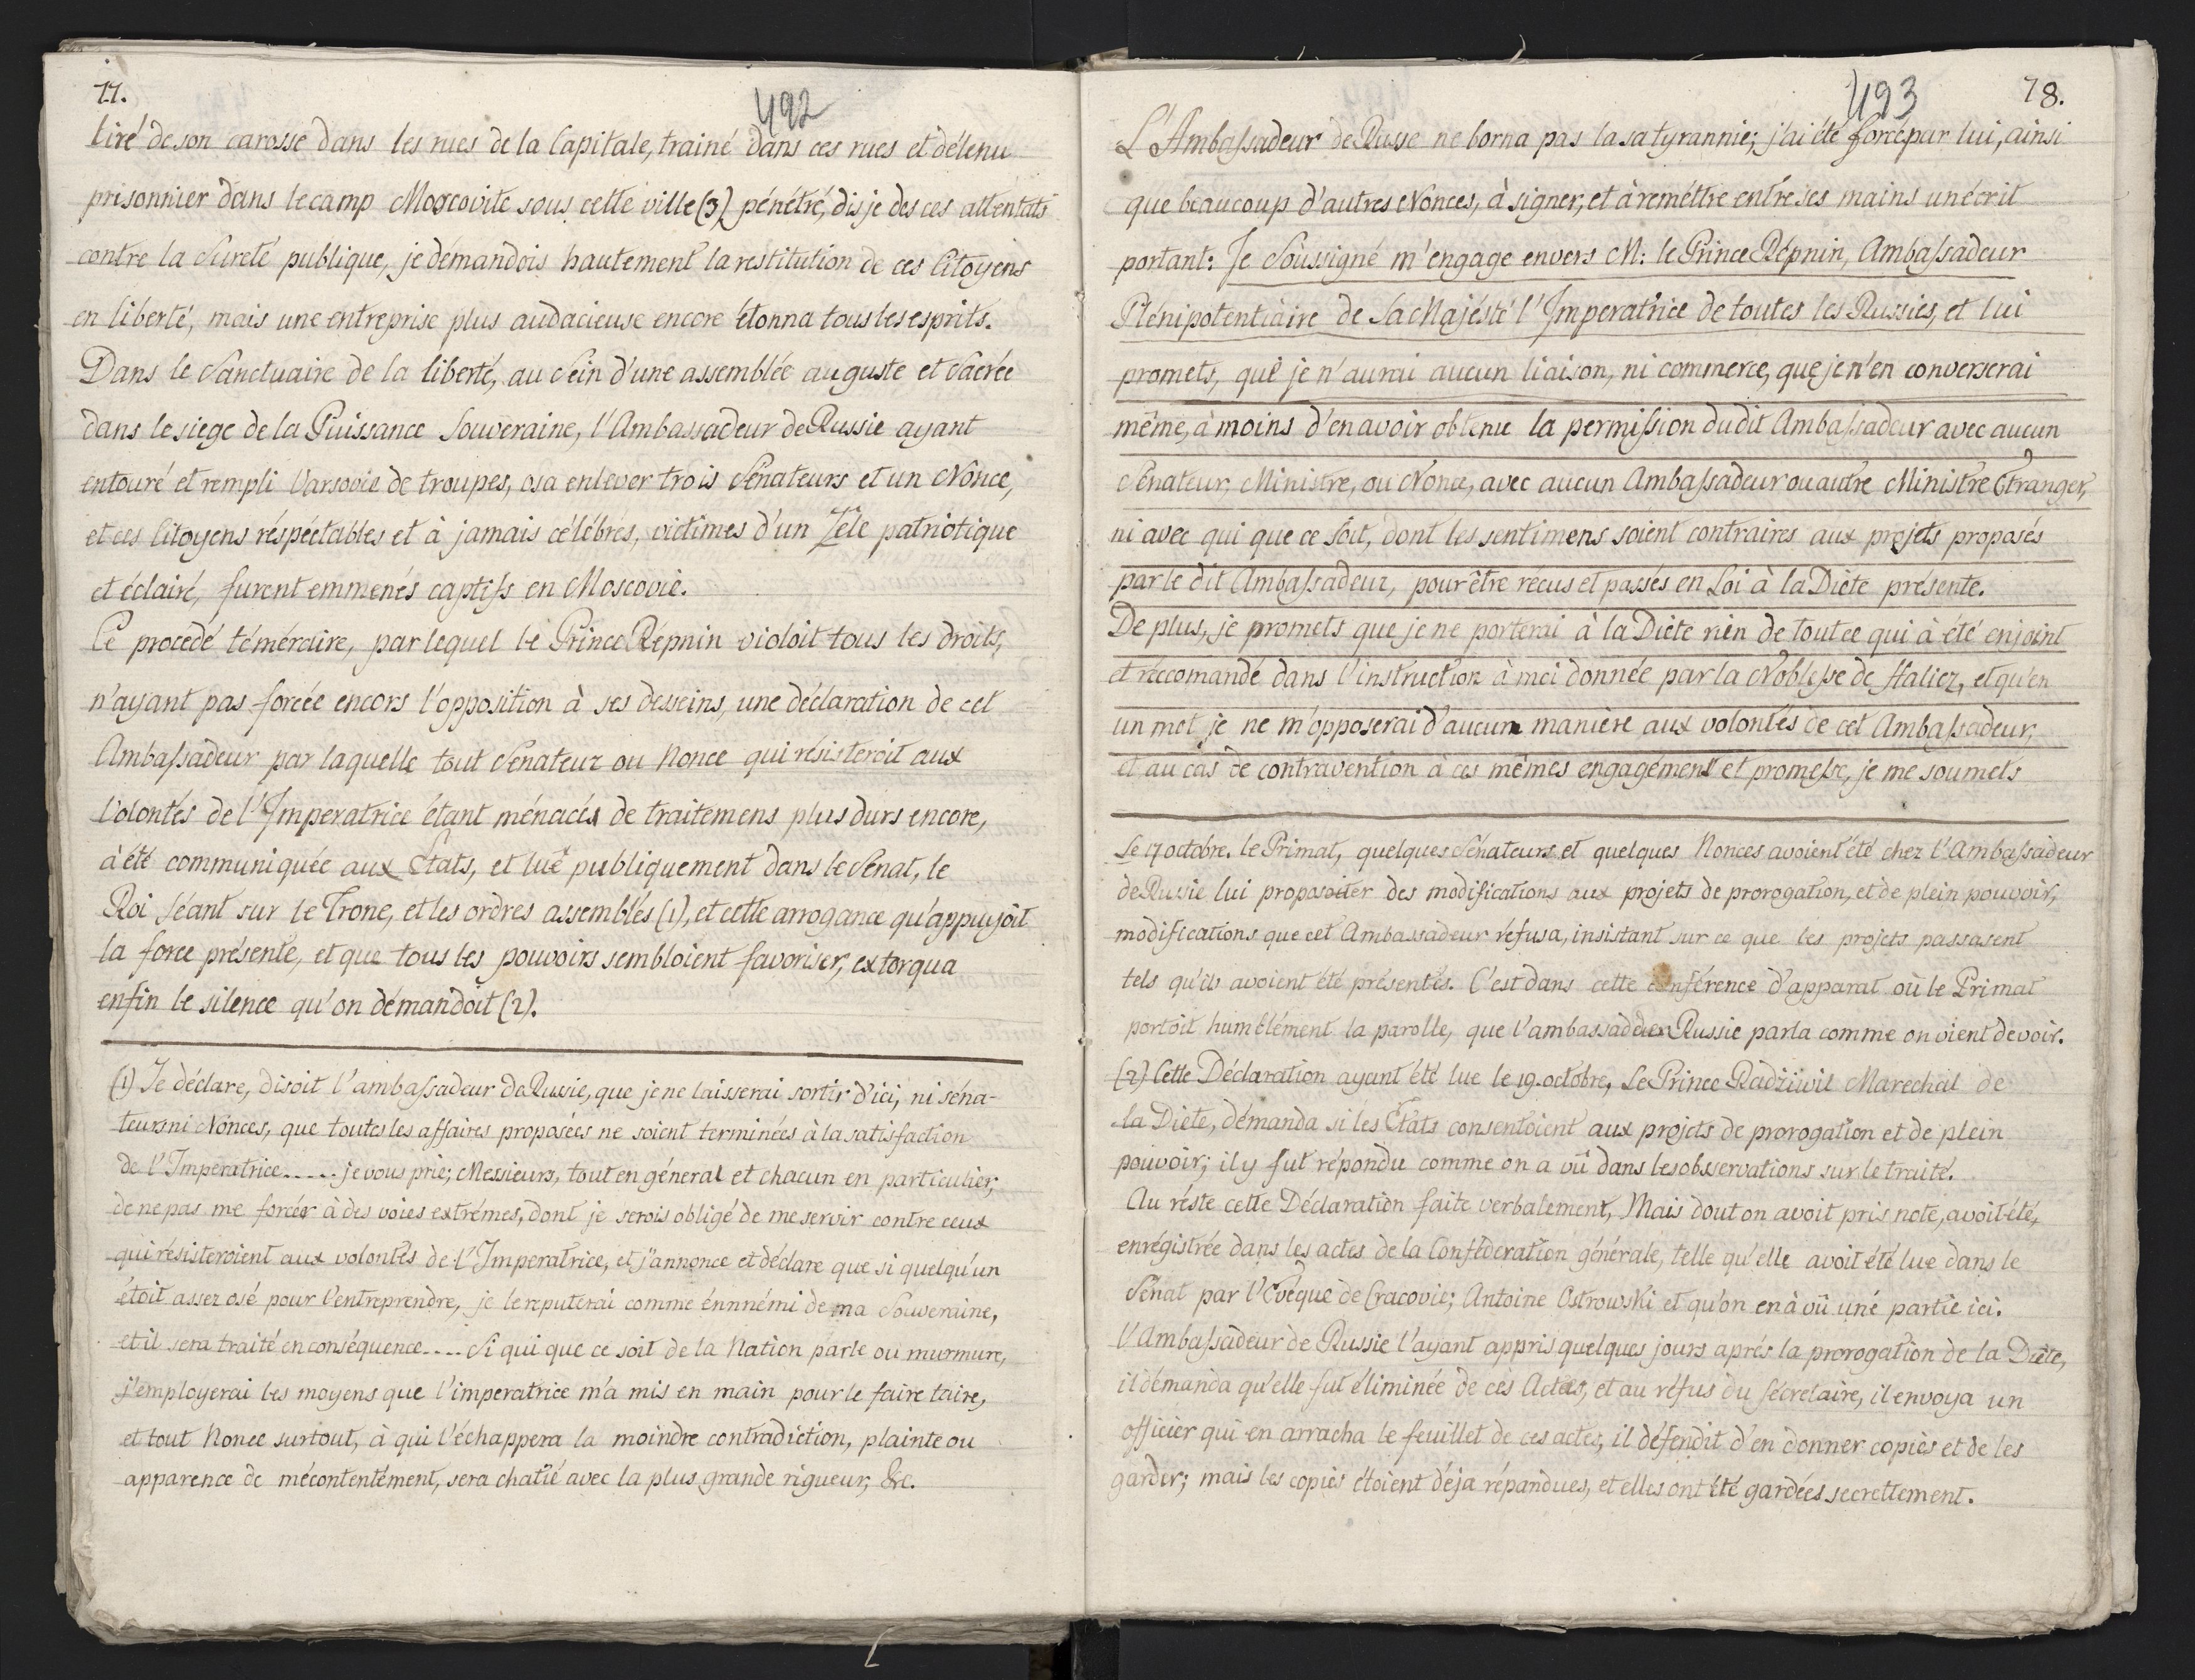 77.
492
tiré de son carosse dans les rues de la Capitale, trainé dans ces rues et détenu
prisonnier dans le camp Moscovite sous cette ville (3) pénétré, dis je des ces attentats
contre la Sureté publique, je démandois hautement la restitution de ces Citoyens
en liberté, mais une entreprise plus audacieuse encore étonna tous les esprits.
Dans le Sanctuaire de la liberté, au Sein d'une assemblée auguste et Sacrée
dans le siege de la Puissance Souveraine, l'Ambassadeur de Russie ayant
entouré et rempli Varsovie de troupes, osa enlever trois Sénateurs et un Nonce,
et ces Citoyens réspéctables et à jamais célébres, victimes d'un Zéle patriotique
et éclairé, furent emmenés captifs en Moscovie.
Ce procédé téméraire, par lequel le Prince Répnin violoit tous les droits,
n'ayant pas forcée encors l'opposition à ses desseins, une déclaration de cet
Ambassadeur par laquelle tout Sénateur ou Nonce qui résisteroit aux
Volontés de l'Imperatrice étant ménacés de traitemens plus durs encore,
à été communiquée aux Etats, et luë publiquement dans le Sénat, le
Roi Séant sur le Trone, et les ordres assemblés (1), et cette arrogance qu'appuyoit
la force présente, et que tous les pouvoirs sembloient favoriser, extorqua
enfin le silence qu'on démandoit (2).
(1) Je déclare, disoit l'ambassadeur de Russie, que je ne laisserai sortir d'ici, ni séna-
teurs ni Nonces, que toutes les affaires proposées ne soient terminées à la satisfaction
de l'Imperatrice ..... je vous prie; Messieurs, tout en géneral et chacun en particulier,
de ne pas me forcér à des voies extrémes, dont je serois obligé de me servir contre ceux
qui résisteroient aux volontés de l'Imperatrice, et j'annonce et déclare que si quelqu'un
étoit assez osé pour l'entreprendre, je le reputerai comme énnnémi de ma Souveraine,
et il sera traité en conséquence .... Si qui que ce soit de la Nation parle ou murmure,
j'employerai les moyens que l'imperatrice m'a mis en main pour le faire taire,
et tout Nonce surtout, à qui l'échappera la moindre contradiction, plainte ou
apparence de mécontentément, sera chatié avec la plus grande rigueur, &c.
493
78.
L'Ambassadeur de Russie ne borna pas la sa tyrannie; j'ai été forcé par lui, ainsi
que beaucoup d'autres Nonces, à signer, et à reméttre entre ses mains un écrit
portant: Je Soussigné m'engage envers M: le Prince Répnin, Ambassadeur
Plénipotentiaire de Sa Majésté l'Imperatrice de toutes les Russies, et lui
promets, que je n'aurai aucun liaison, ni commerce, que je n'en converserai
même, à moins d'en avoir obtenu la permission du dit Ambassadeur avec aucun
Sénateur, Ministre, ou Nonce, avec aucun Ambassadeur ou autre Ministre Etranger,
ni avec qui que ce soit, dont les sentimens soient contraires aux projets proposés
par le dit Ambassadeur, pour être récus et passés en Loi à la Diéte présente.
De plus, je promets que je ne porterai à la Diéte rien de tout ce qui à été enjoint
et réccomandé dans l'instruction à moi donnée par la Noblesse de Halicz, et qu'en
un mot je ne m'opposerai d'aucun manière aux volontés de cet Ambassadeur,
et au cas de contravention à ces mêmes engagément et promesse, je me soumets
Le 17 octobre. le Primat, quelques Sénateurs et quelques Nonces avoient été chez l'Ambassadeur
de Russie lui proposoiter des modifications aux projets de prorogation, et de plein pouvoir,
modifications que cet Ambassadeur refusa, insistant sur ce que les projets passasent
tels qu'ils avoient été présentés. C'est dans cette conférence d'apparat où le Primat
portoit humblément la parolle, que l'ambassaddeen Russie parla comme on vient de voir.
(2) Cette Déclaration ayant été lue le 19. octobre, Le Prince Radziwil Marechal de
la Diéte, démanda si les Etats consentoient aux projets de prorogation et de plein
pouvoir; il y fut répondu comme on a vû dans les observations sur le traité.
Au réste cette Déclaration faite verbalement, Mais dout on avoit pris note, avoit été,
enrégistrée dans les actes de la Conféderation générale, telle qu'elle avoit été lue dans le
Sénat par l'Evêque de Cracovie; Antoine Ostrowski et qu'on en à vû une partie ici.
l'Ambassadeur de Russie l'ayant appris quelques jours aprés la prorogation de la Diéte,
il démanda qu'elle fut éliminée de ces Actes, et au réfus du Sécretaire, il envoya un
officier qui en arracha le feuillet de ces actes, il défendit d'en donner copiés et de les
garder; mais les copiés étoient déja répandues, et elles ont été gardées secrettement.